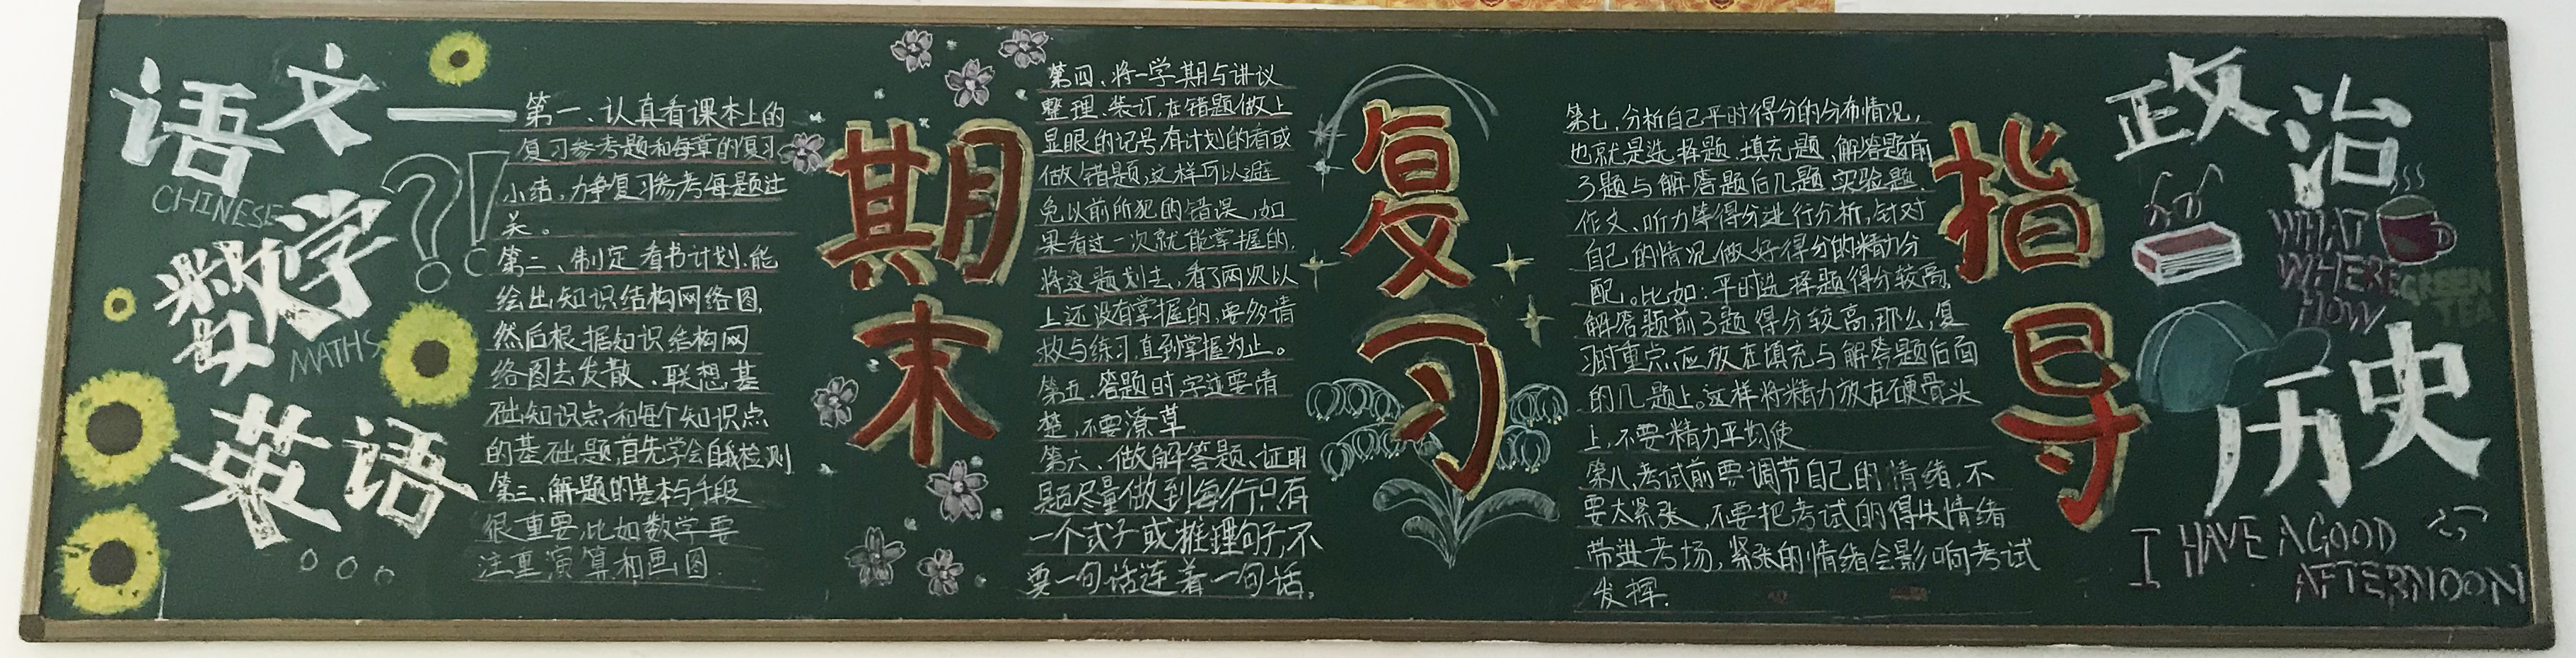 语文——
CHINESE
数学
MATHS
英语
?!
第一、认真看课本上的
复习参考题和每章的复习
小结,力争复习参考每题过
关。
第二、制定看书计划,能
绘出知识结构网络图,
然后根据知识结构网
络图去发散、联想基
础知识点和每个知识点
的基础题,首先学会自我检测
第三、解题的基本与手段
很重要,比如数学要
注重演算和画图.
期末
第四、将一学期与讲议
整理、装订,在错题做上
显眼的记号,有计划的看或
做错题,这样可以避
免以前所犯的错误,如
果看过一次就能掌握的,
将这题划去,看了两次以
上还没有掌握的,要多请
教与练习,直到掌握为止。
第五、答题时,字迹要清
楚,不要潦草.
第六、做解答题、证明
题尽量做到每行只有
一个式子或推理句子,不
要一句话连着一句话。
复习
第七、分析自己平时得分的分布情况,
也就是选择题、填充题、解答题前
3题与解答题后几题、实验题、
作文、听力等得分进行分析,针对
自己的情况做好得分的精力分
配。比如:平时选择题得分较高,
解答题前3题得分较高,那么,复
习时重点应放在填充与解答题后面
的几题上。这样将精力放在硬骨头
上,不要精力平均使
第八、考试前要调节自己的情绪,不
要太紧张,不要把考试的得失情绪
带进考场,紧张的情绪会影响考试
发挥.
指导
政治
WHAT
WHERE
HOW
GREEN
TEA
历史
I HAVE A GOOD
AFTERNOON